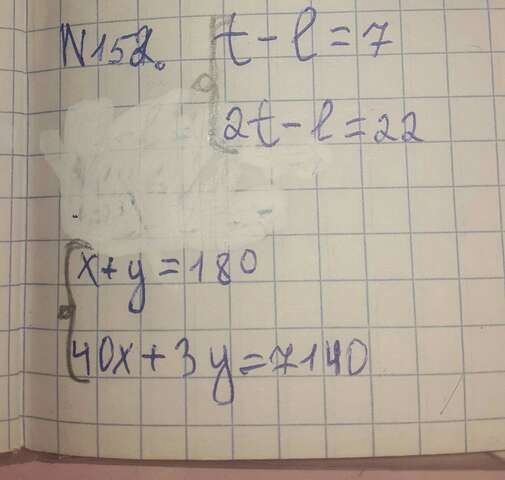 N152. t - l = 7
2t - l = 22
x + y = 180
40x + 3y = 7140